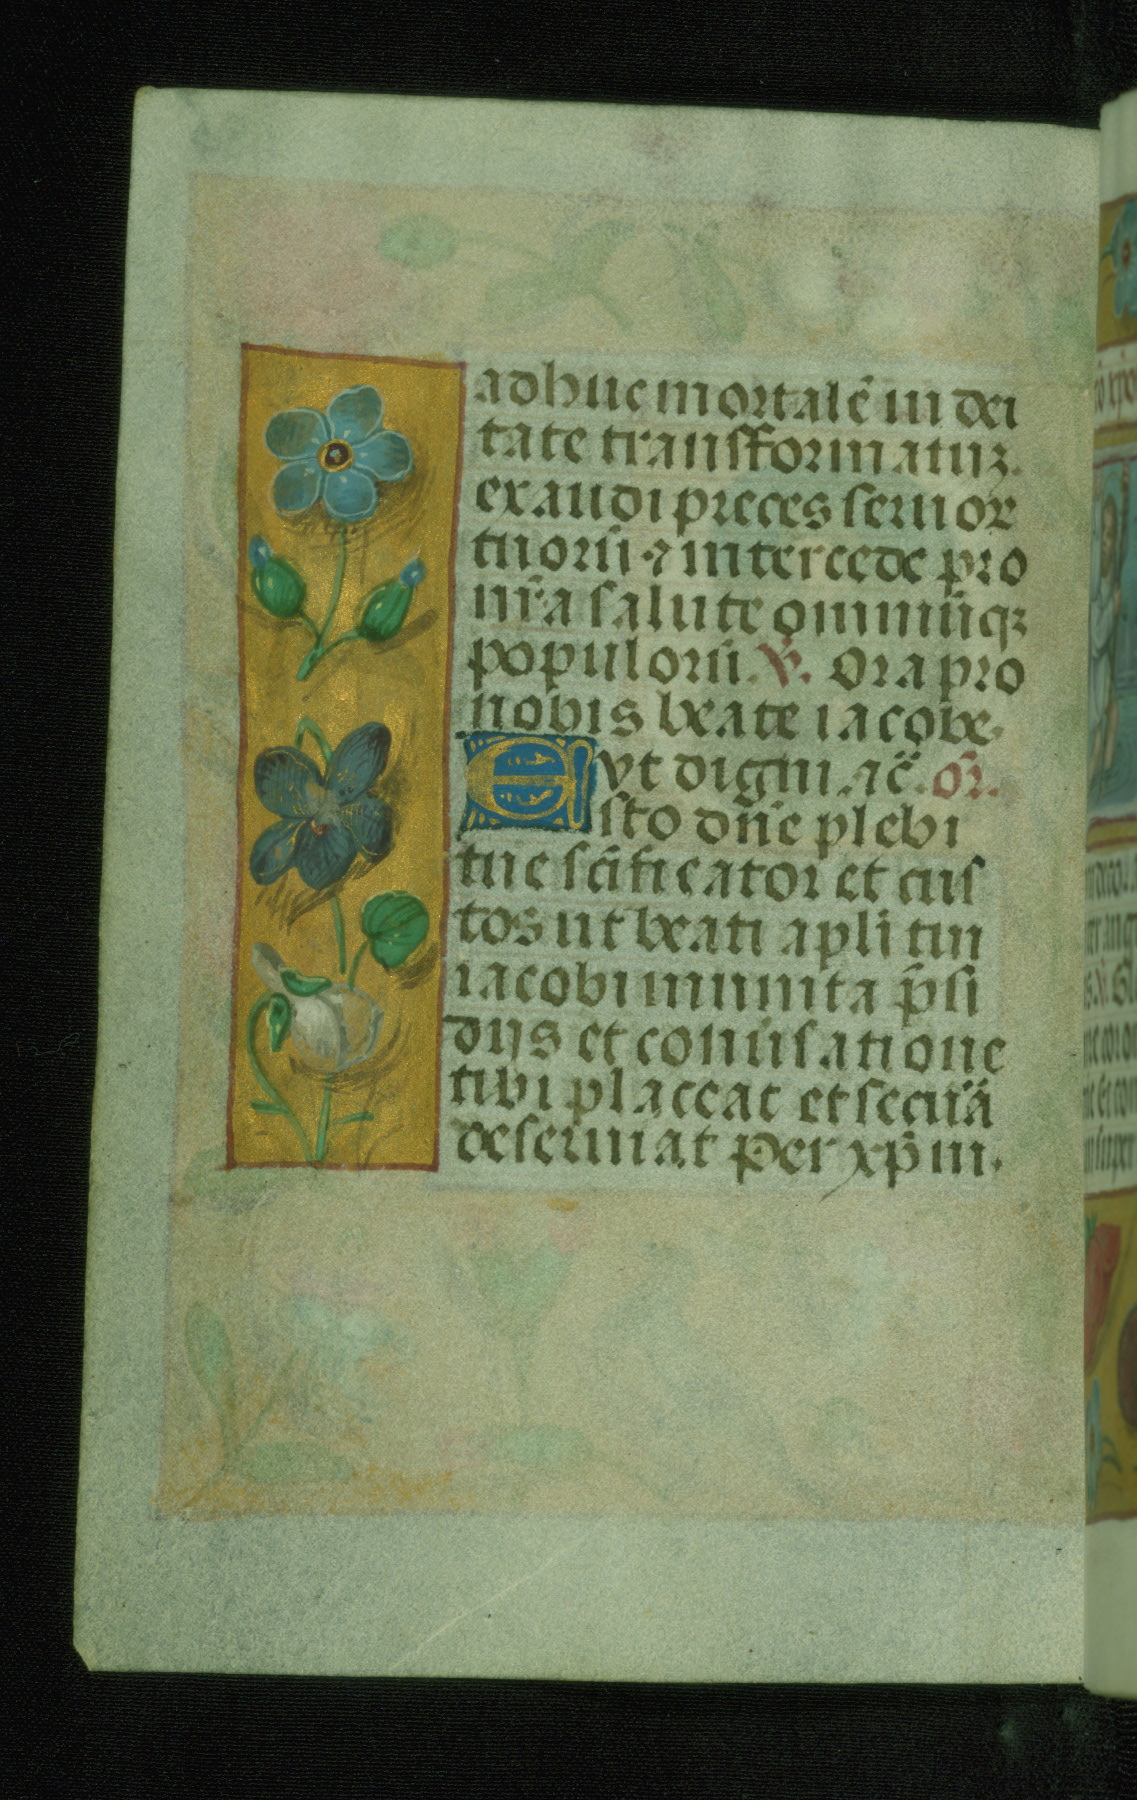 adhuc mortalē in dei
tate transformatuʒ.
exaudi preces seruor
tuorū ⁊ intercede pro
nr̄a salute omniūqʒ
populorū. V̄. Ora pro
nobis beate iacobe.
vt digni ⁊c̄. or̄.
Esto dn̄e plebi
tue sc̄ificator et cus
tos ut beati apli tui
iacobi munita p̄si
diis et conūsatione
tibi placeat et secura
deseruiat Per xp̄m.